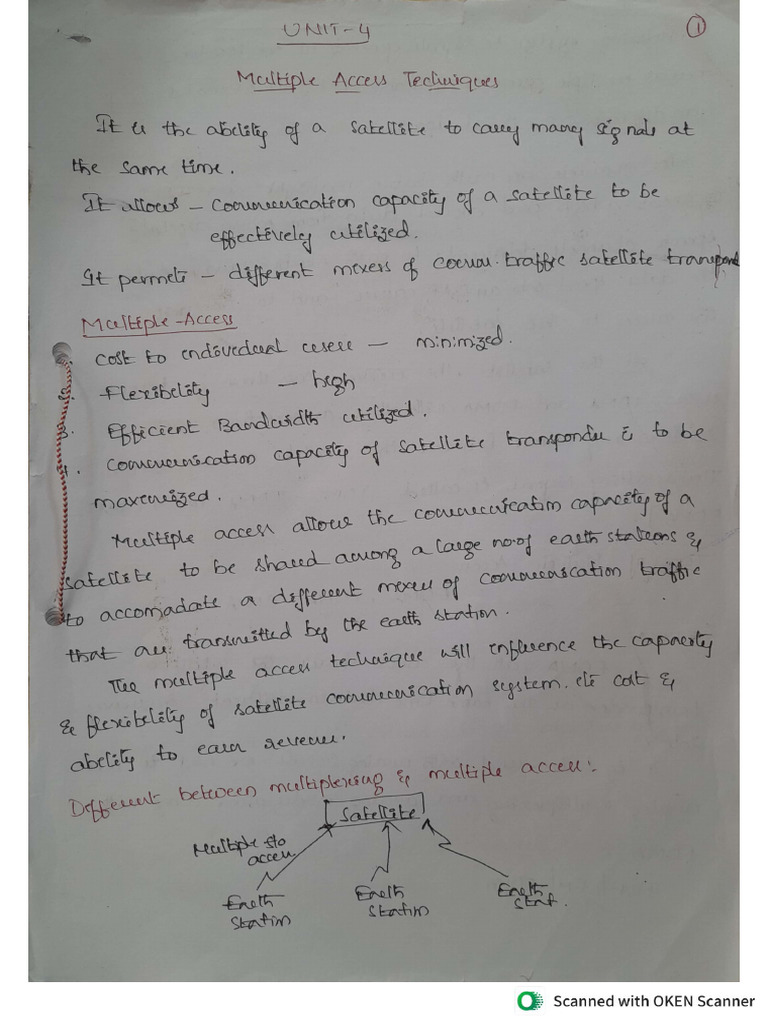 UNIT-4
1
Multiple Access Techniques
It is the ability of a satellite to carry many signals at
the same time.
It allows – Communication capacity of a satellite to be
effectively utilized.
It permits – different mixers of commu. traffic satellite transpond
Multiple-Access
1. Cost to individual user – minimized.
2. Flexibility – high
3. Efficient Bandwidth utilized.
4. Communication capacity of satellite transponder is to be
maximized.
Multiple access allows the communication capacity of a
satellite to be shared among a large no.of earth stations &
to accomjadate a different mixer of communication traffic
that are transmitted by the earth station.
The multiple access technique will influence the capacity
& flexibility of satellite communication system. its cost &
ability to earn revenue.
Different between multiplexing & multiple access:.
Satellite
Multiple sto
access
Earth
Station
Earth
Station
Earth
Stat.
Scanned with OKEN Scanner